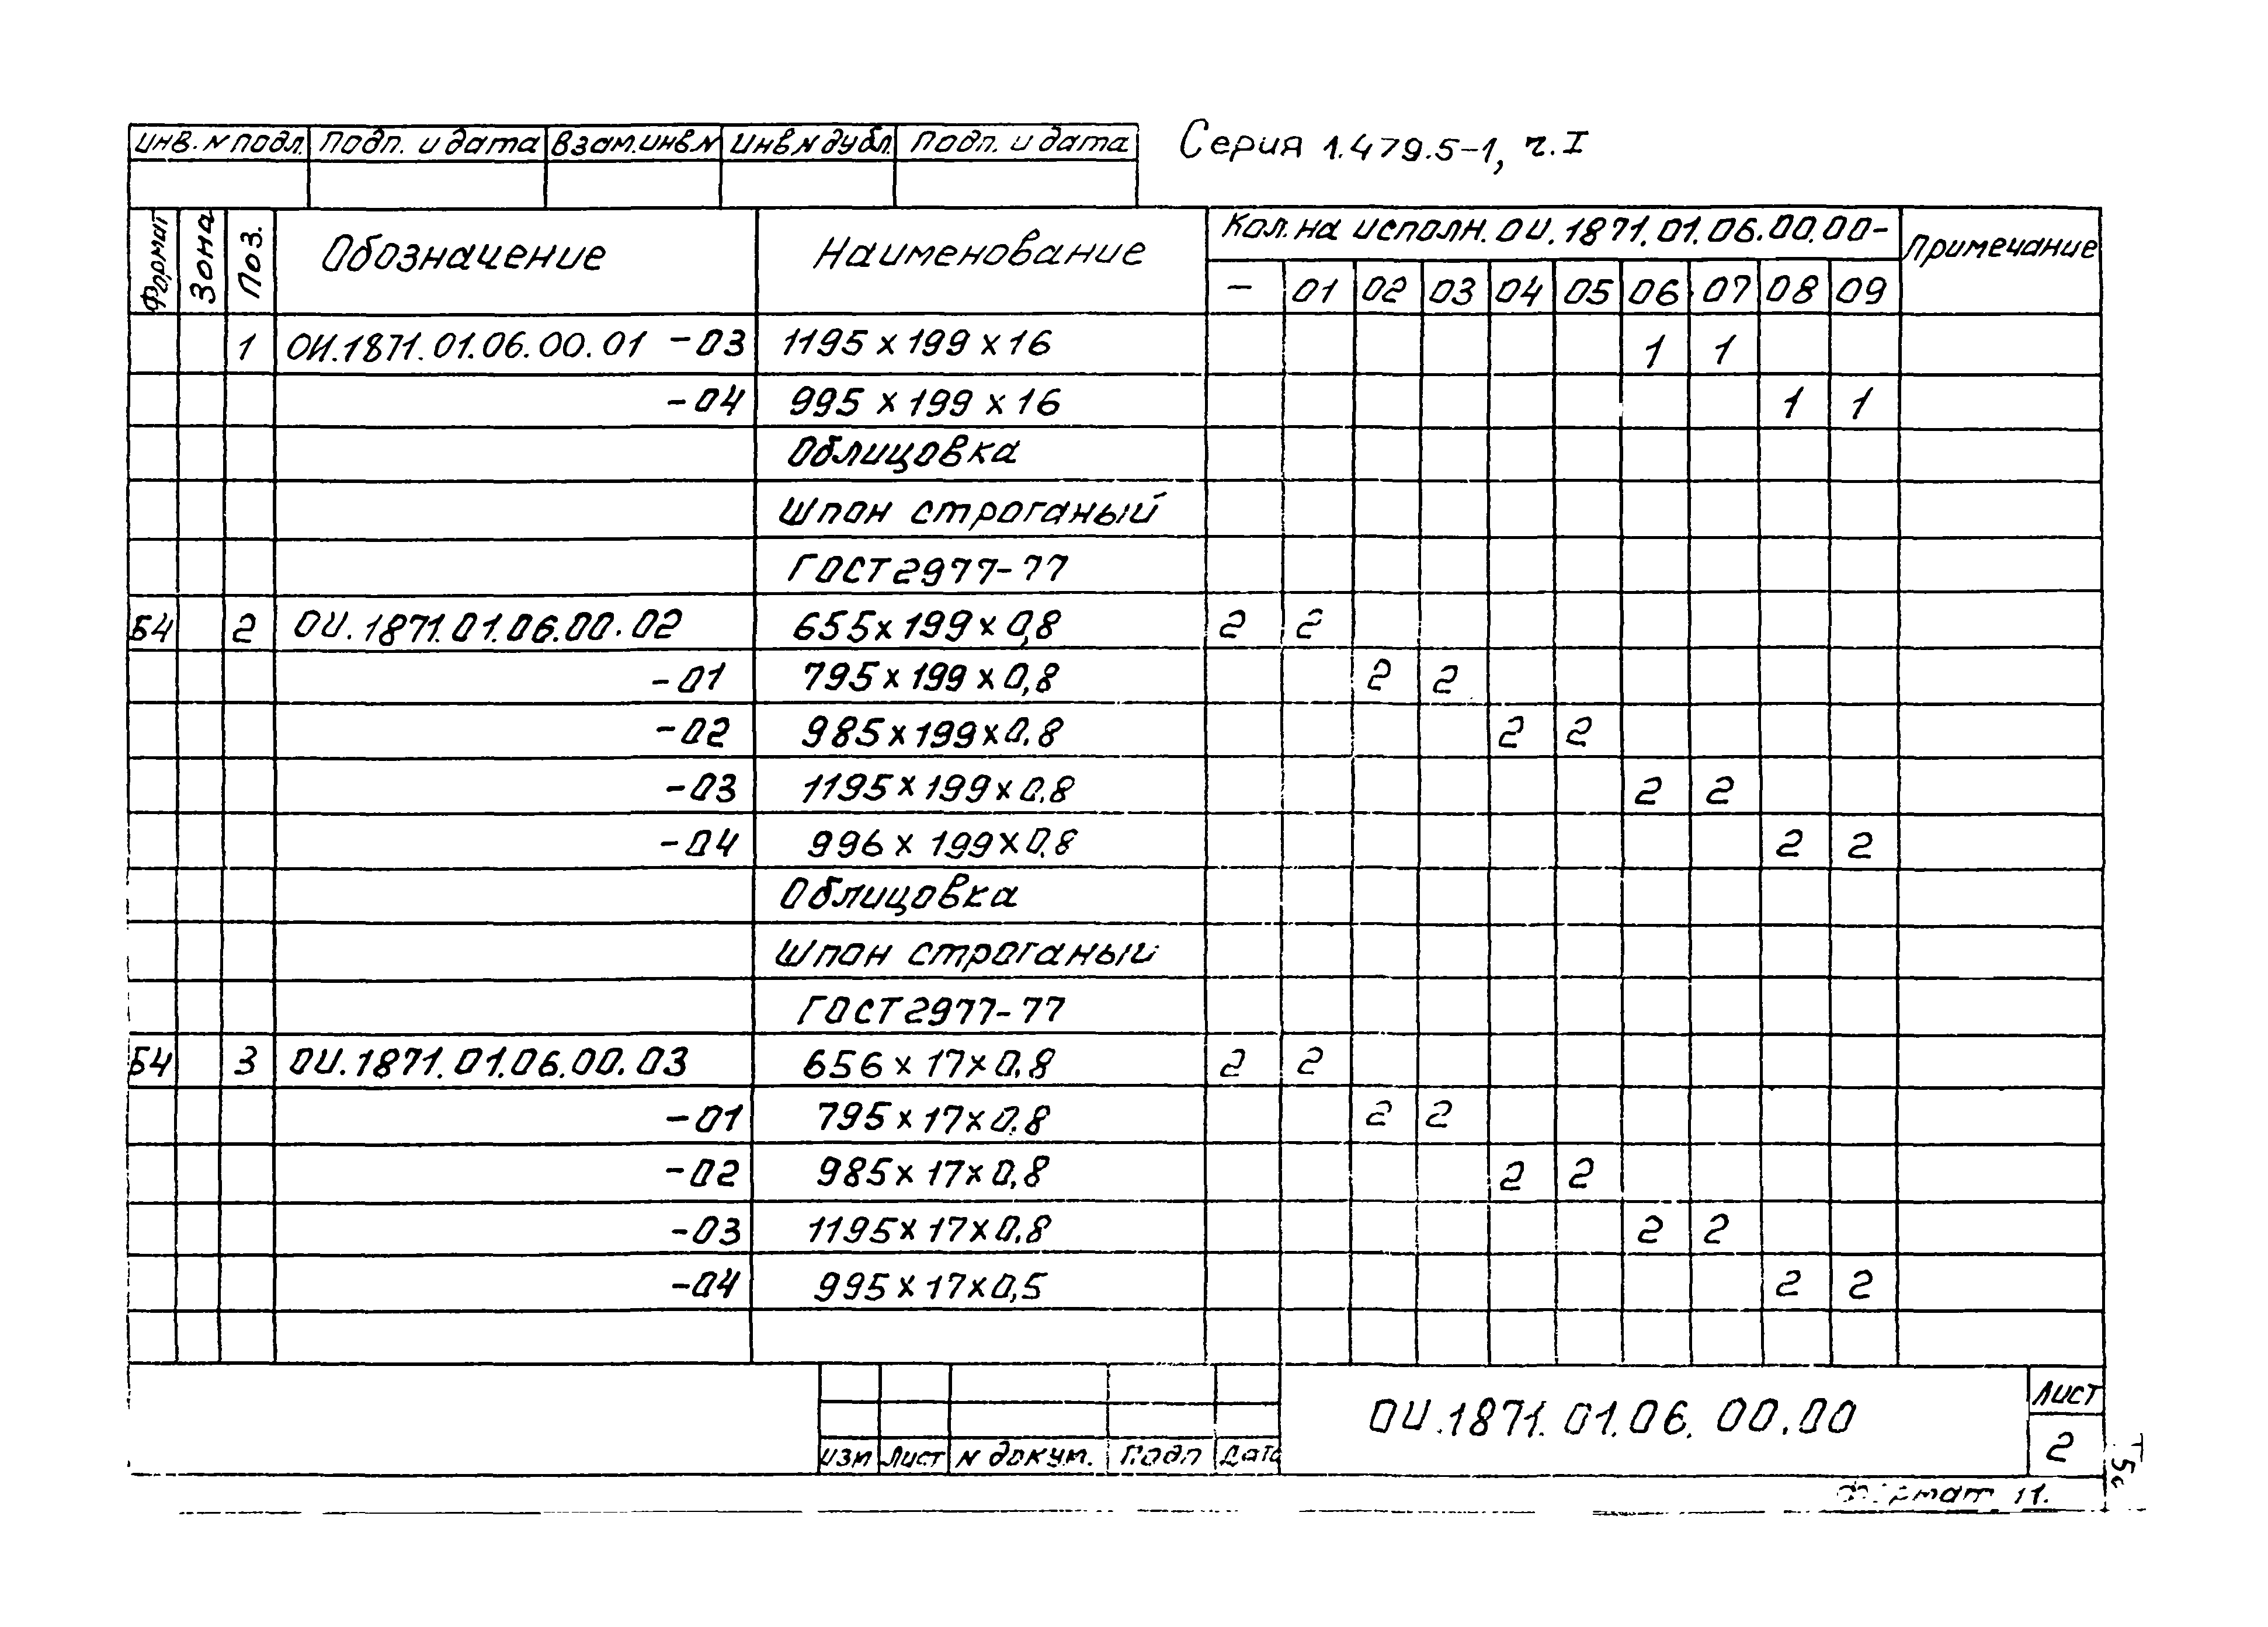 Инв. N подл. Подп. и дата Взам.инв.N Инв.N дубл. Подп. и дата
Серия 1.479.5-1, ч.I
Формат Зона Поз. Обозначение Наименование Кол. на исполн. ОИ.1871.01.06.00.00- Примечание
- 01 02 03 04 05 06 07 08 09
1 ОИ.1871.01.06.00.01 -03 1195 x 199 x 16 1 1
-04 995 x 199 x 16 1 1
Облицовка
Шпон строганый
ГОСТ 2977-77
Б4 2 ОИ.1871.01.06.00.02 655x199x0,8 2 2
-01 795x199x0,8 2 2
-02 985x199x0,8 2 2
-03 1195x199x0,8 2 2
-04 996x199x0,8 2 2
Облицовка
Шпон строганый
ГОСТ 2977-77
Б4 3 ОИ.1871.01.06.00.03 656x17x0,8 2 2
-01 795x17x0,8 2 2
-02 985x17x0,8 2 2
-03 1195x17x0,8 2 2
-04 995x17x0,5 2 2
Изм Лист N докум. Подп Дата
ОИ.1871.01.06.00.00
Лист
2
Формат 11.